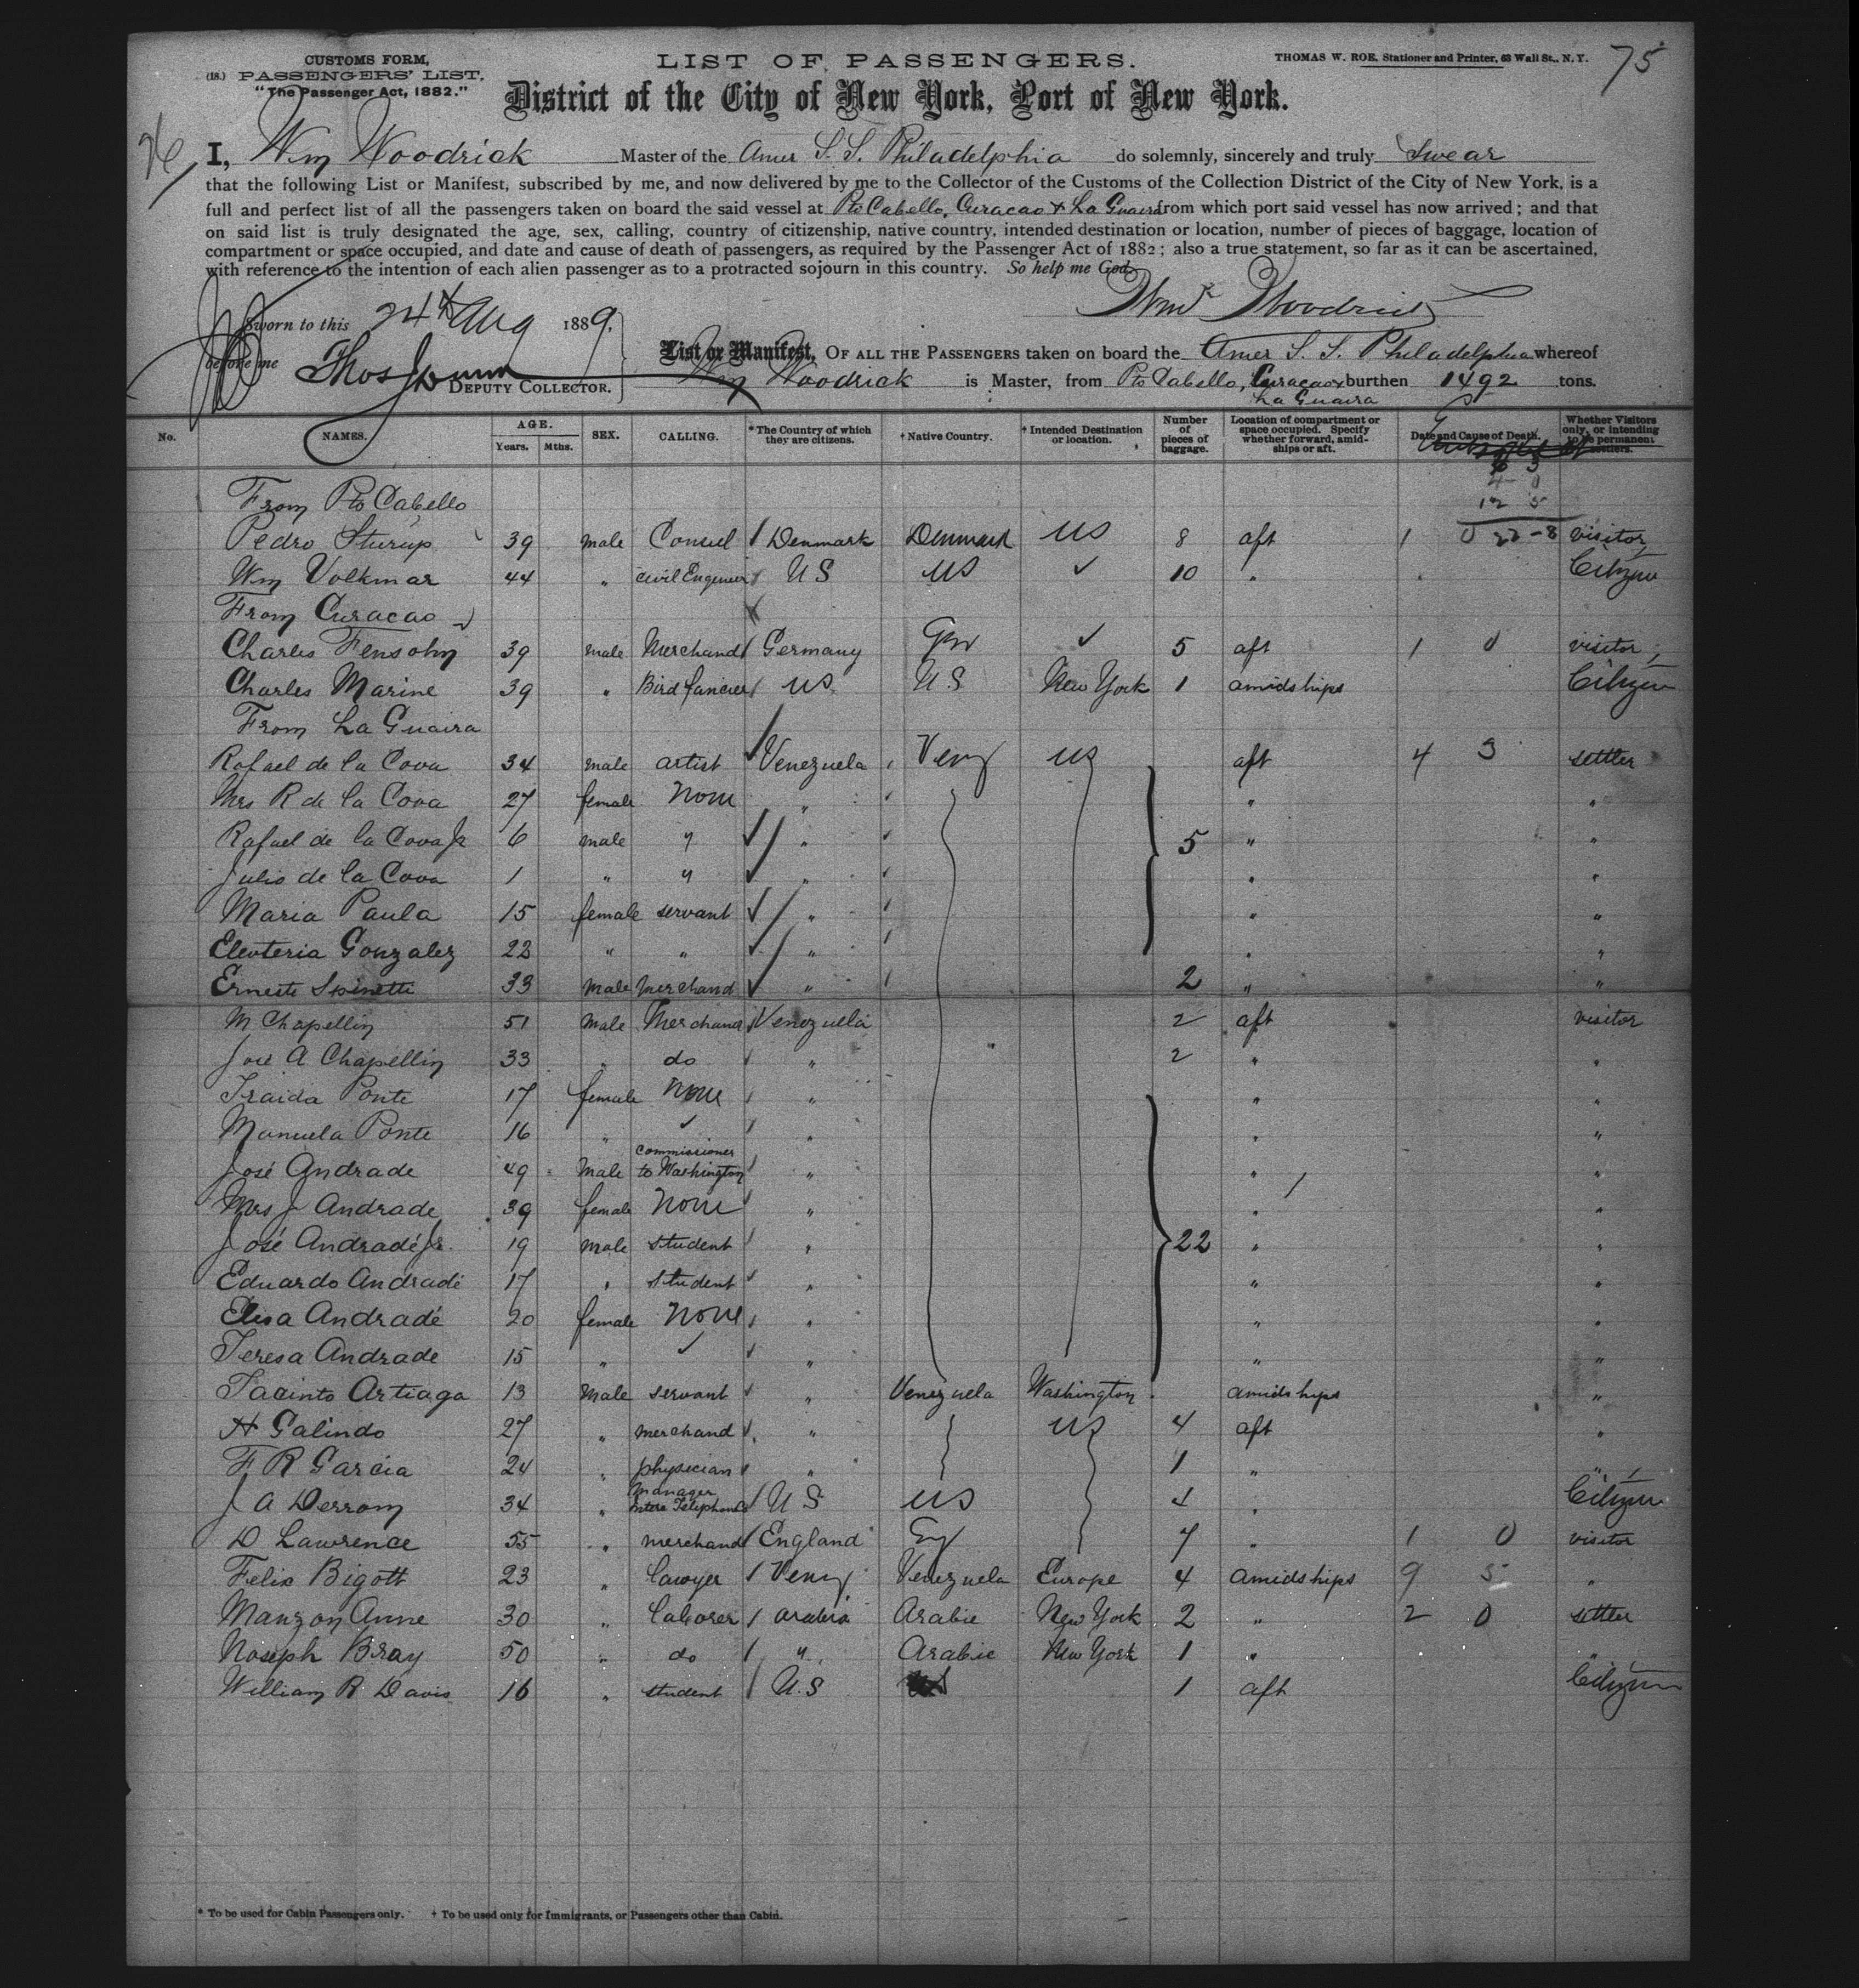 75
CUSTOMS FORM,
(18.) PASSENGERS' LIST.
"The Passenger Act, 1882."
LIST OF PASSENGERS.
THOMAS W. ROE, Stationer and Printer, 63 Wall St., N. Y.
District of the City of New York, Port of New York.
I, Wm Woodrick Master of the Amer S. S. Philadelphia do solemnly, sincerely and truly swear
that the following List or Manifest, subscribed by me, and now delivered by me to the Collector of the Customs of the Collection District of the City of New York, is a
full and perfect list of all the passengers taken on board the said vessel at Pto Cabello, Curacao & La Guaira from which port said vessel has now arrived; and that
on said list is truly designated the age, sex, calling, country of citizenship, native country, intended destination or location, number of pieces of baggage, location of
compartment or space occupied, and date and cause of death of passengers, as required by the Passenger Act of 1882; also a true statement, so far as it can be ascertained,
with reference to the intention of each alien passenger as to a protracted sojourn in this country. So help me God.
Wm Woodrick
Sworn to this 24th Aug 1889.
before me Thos
DEPUTY COLLECTOR.
List or Manifest, OF ALL THE PASSENGERS taken on board the Amer S. S. Philadelphia whereof
Wm Woodrick is Master, from Pto Cabello, Curacao & La Guaira burthen 1492 tons.
No. NAMES. AGE. Years. Mths. SEX. CALLING. * The Country of which they are citizens. † Native Country. † Intended Destination or location. Number of pieces of baggage. Location of compartment or space occupied. Specify whether forward, amidships or aft. Date and Cause of Death. Whether Visitors only, or intending to be permanent settlers.
6 3
4 0
12 5
From Pto Cabello
Pedro Sturup 39 male Consul Denmark Denmark US 8 aft 1 0 22-8 visitor
Wm Volkmar 44 " civil Engineer US US ✓ 10 " Citizen
From Curacao
Charles Fensohn 39 male Merchand Germany Ger ✓ 5 aft 1 0 visitor
Charles Marine 39 " Bird fancier US U.S New York 1 amidships Citizen
From La Guaira
Rafael de la Cova 34 male artist Venezuela Venz US aft 4 3 settler
Mrs R de la Cova 27 female None " " "
Rafael de la Cova Jr 6 male " " 5 " "
Julio de la Cova 1 " " " " "
Maria Paula 15 female servant " " "
Elevteria Gonzalez 22 " " " " "
Ernesto Spinetti 33 male merchand " 2 " "
M Chapellin 51 male Merchand Venezuela 2 aft visitor
José A Chapellin 33 " do " 2 " "
Iraida Ponte 17 female None " " "
Manuela Ponte 16 " ✓ " " "
José Andrade 49 male commissioner to Washington " " "
Mrs J Andrade 39 female None " " "
José Andradé Jr. 19 male student " 22 " "
Eduardo Andradé 17 " student " " "
Elisa Andradé 20 female None " " "
Teresa Andrade 15 " ✓ " " "
Jacinto Artiaga 13 male servant " Venezuela Washington amidships "
H Galindo 27 " merchand " US 4 aft "
F R Garcia 24 " physician " 1 " "
J A Derrom 34 " Manager Inter Telephone US US 4 " Citizen
D Lawrence 55 " merchand England Eng 7 " 1 0 visitor
Felix Bigott 23 " lawyer Venz Venezuela Europe 4 amidships 9 5 "
Manzon Anne 30 " laborer arabia Arabie New York 2 " 2 0 settler
Noseph Bray 50 " do " Arabie New York 1 " "
William R Davis 16 " student U.S US 1 aft Citizen
* To be used for Cabin Passengers only. † To be used only for Immigrants, or Passengers other than Cabin.